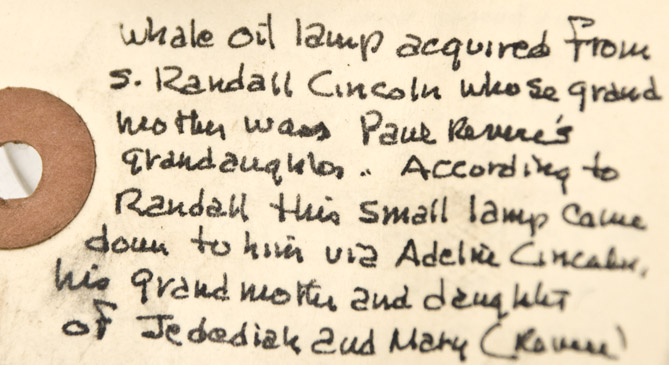 whale oil lamp acquired from
S. Randall Lincoln whose grand
mother was Paul Revere's
grandaughter.. According to
Randall this small lamp came
down to him via Adeline Lincoln,
his grandmother and daughter
of Jedediah and Mary (Revere)